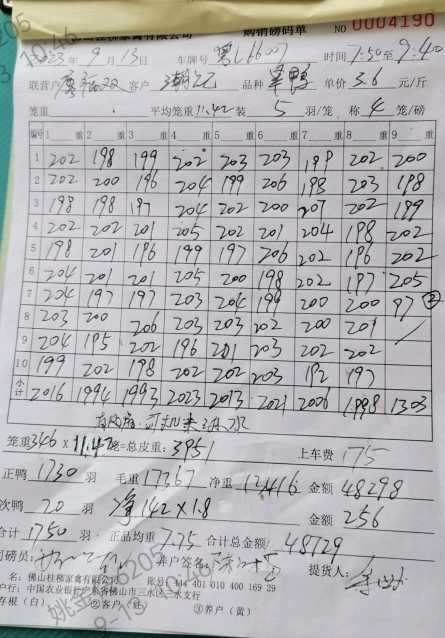 佛山桂柳家禽有限公司 购销磅码单 NO 0004190
2023年9月13日 车牌号 粤L66007 时间7:50至9:40
联营户 客户 品种 单鸭 单价 3.6 元/斤
笼重: 平均笼重11.42装 5 羽/笼 称 4 笼/磅
编号 1 重 2 重 3 重 4 重 5 重 6 重 7 重 8 重 9 重
1 202 198 199 202 203 203 198 202 200
2 202 200 196 204 199 206 198 203 198
3 198 198 197 204 202 200 207 202 199
4 202 202 201 205 202 201 204 198 202
5 198 201 196 199 197 206 202 196 202
6 204 201 201 205 200 198 202 197 205
7 204 197 197 203 204 199 200 200 97 ②
8 203 200 206 203 203 202 200 201
9 204 195 202 196 201 203 202 202
10 199 202 198 202 202 203 192 197
小计 2016 1994 1993 2023 2013 2021 2006 1998 1303
笼重346 x 11.42 笼=总皮重: 3951 上车费 175
正鸭 1730 羽 毛重 17367 净重 13416 金额 48298
次鸭 20 羽 净 142 x 1.8 金额 256
合计 1750 羽 正品均重 7.75 合计总金额: 48729
司磅员: 养户签名: 提货人:
名: 佛山桂柳家禽有限公司 账号: 444 401 010 400 169 29
户行: 中国农业银行广东省佛山市三水区三水支行
存根(白) ②客户(红) ③养户(黄)